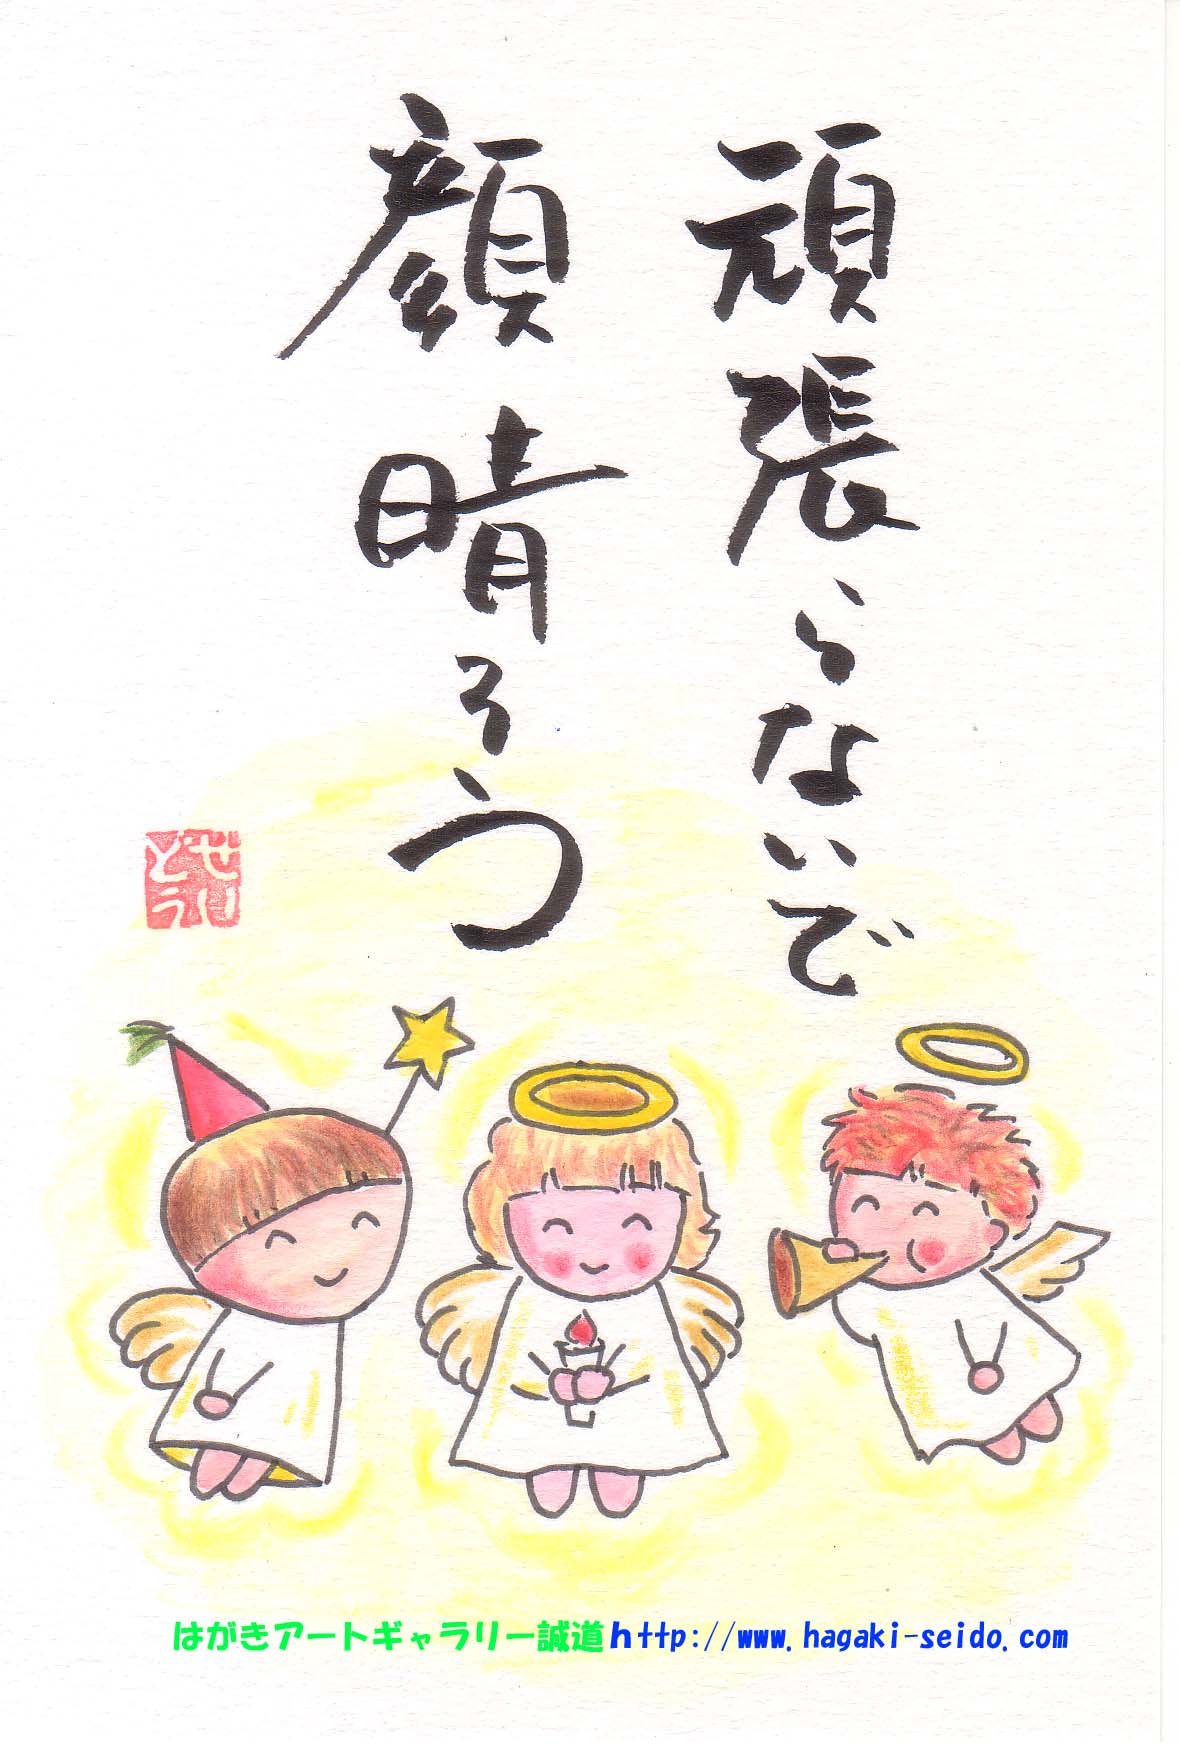 頑張らないで
顔晴ろう
せい
どう
はがきアートギャラリー誠道http://www.hagaki-seido.com